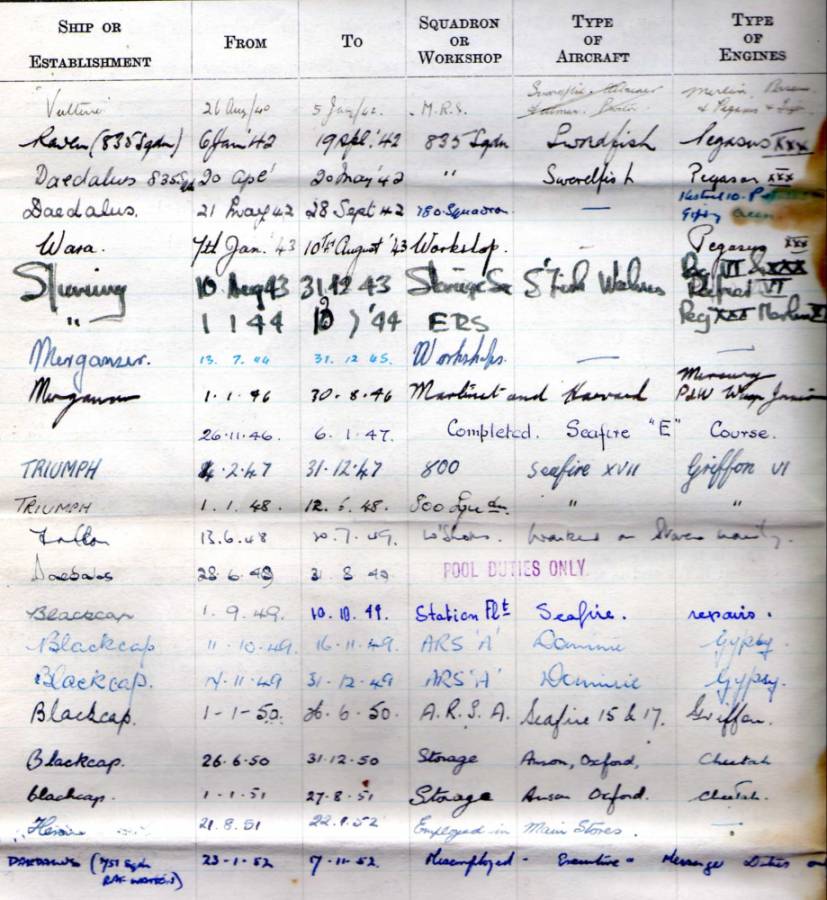 SHIP OR ESTABLISHMENT FROM TO SQUADRON OR WORKSHOP TYPE OF AIRCRAFT TYPE OF ENGINES
Vulture 26 Aug/40 5 Jan/42. M.R.S. Swordfish Merlin, Perseus
Raven (835 Sqdn) 6 Jan '42 19 Apl. '42 835 Sqdn Swordfish Pegasus XXX
Daedalus 835 Sqd 20 Apl' 20 May '42 " Swordfish Pegasus XXX
Daedalus. 21 May 42 28 Sept 42 780 Squadron — Kestrel 10.
Gipsy
Wara. 7th Jan. '43 10th August '43 Workshop. — Pegasus XXX
10 Aug 43 31.12 43 Storage Sec S'Fish Walrus Peg VI & XXX
" 1 1 44 '44 ERS Peg XXX Merlin
Merganser. 13. 7. 44 31. 12 45. Workshops. — —
Merganser 1.1.46 30.8.46 Martinet and Harvard Mercury
P&W Wasp Junior
26.11.46. 6.1.47. Completed. Seafire "E" Course.
TRIUMPH 4.2.47 31.12.47 800 Seafire XVII Griffon VI
TRIUMPH 1.1.48. 12.5.48. 800 Squdn. " "
Fulton 13.6.48 20.7.49. W'Shops. Worked on
Daedalus 28.6.49 31 8 49 POOL DUTIES ONLY.
Blackcap 1.9.49. 10.10.49. Station Flt Seafire. repairs.
Blackcap 11.10.49. 16.11.49. ARS 'A' Dominie Gypsy.
Blackcap. 17.11.49 31.12.49 ARS 'A' Dominie Gypsy.
Blackcap. 1-1-50. 26.6.50. A.R.S.A. Seafire 15 & 17. Griffon.
Blackcap. 26.6.50 31.12.50 Storage Anson, Oxford, Cheetah
blackcap. 1-1-51 27.8.51 Storage Anson Oxford. cheetah.
21.8.51 22.1.52 Employed in Main Stores. —
DAEDALUS (751 Sqdn 23-1-52 7-11-52. Misemployed - Executive - Messenger Duties
RAF WATTON)